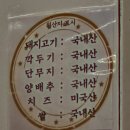 원산지표시
돼지고기 : 국내산
깍두기 : 국내산
단무지 : 국내산
양배추 : 국내산
치즈 : 미국산
쌀 : 국내산